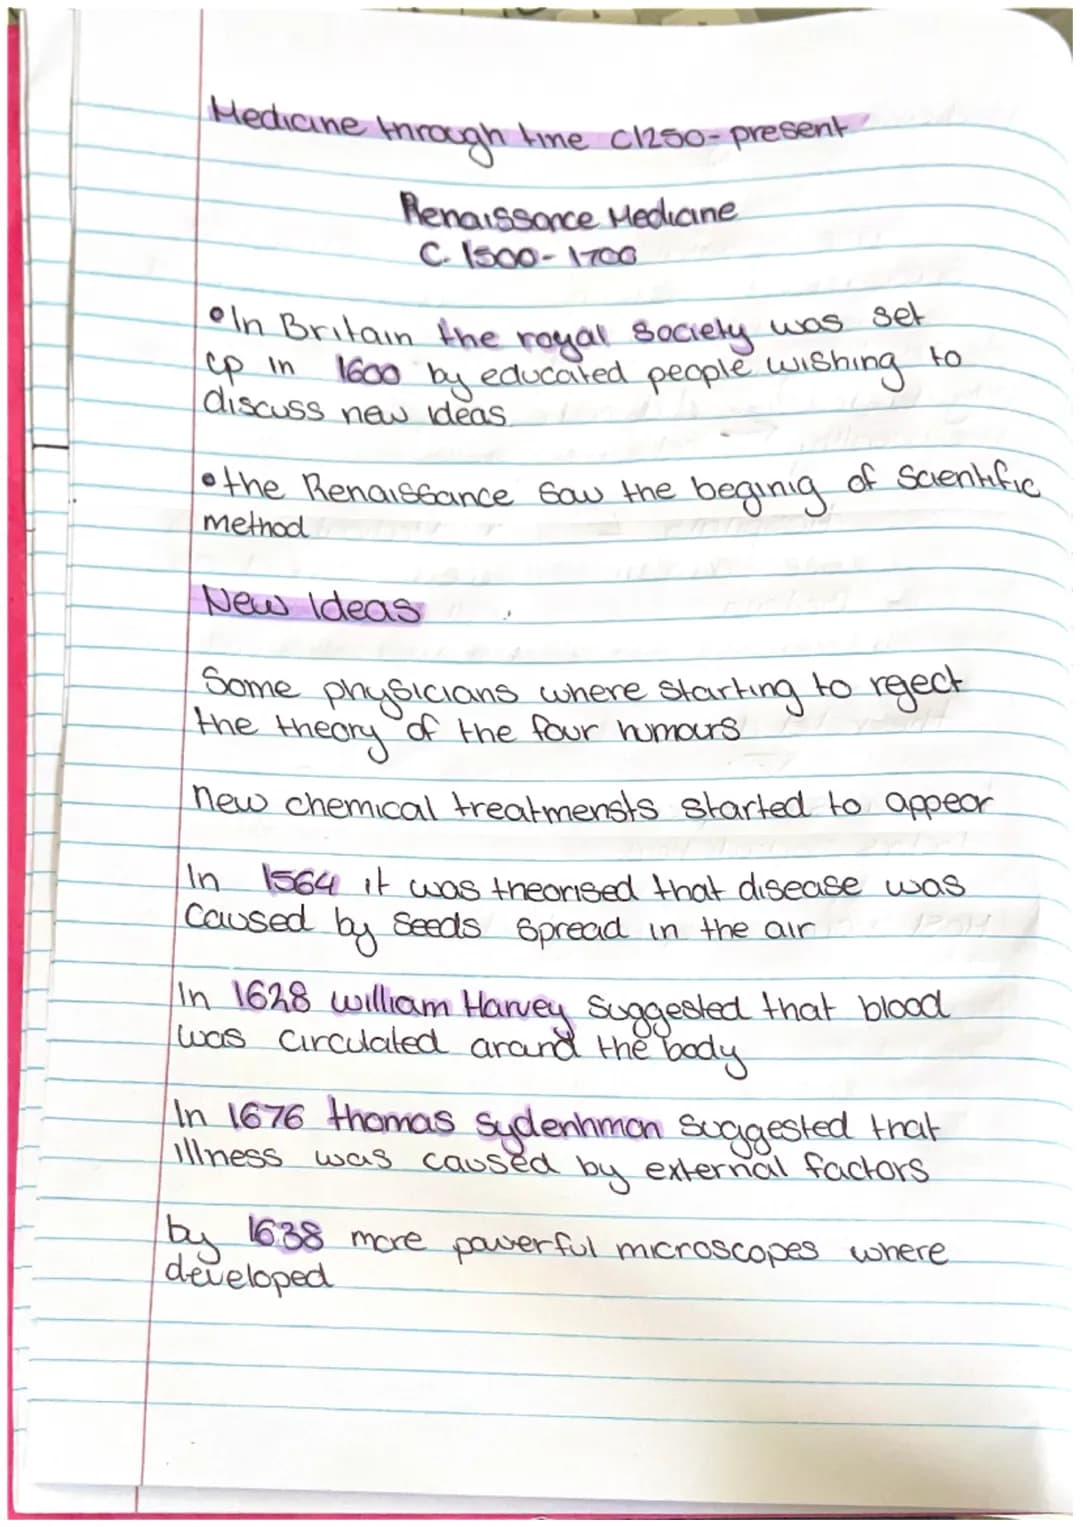 Medicine through time c1250-present
Renaissance Medicine
C. 1500-1700
• In Britain the royal Society was set
up in 1600 by educated people wishing to
discuss new ideas
• the Renaissance saw the beginig of Scientific
method
New Ideas
Some physicians where starting to regect
the theory of the four humours
New chemical treatmensts started to appear
In 1564 it was theorised that disease was
caused by seeds spread in the air
In 1628 william Harvey suggested that blood
was circulated around the body
In 1676 thomas Sydenhman suggested that
illness was caused by external factors
by 1638 more powerful microscopes where
developed